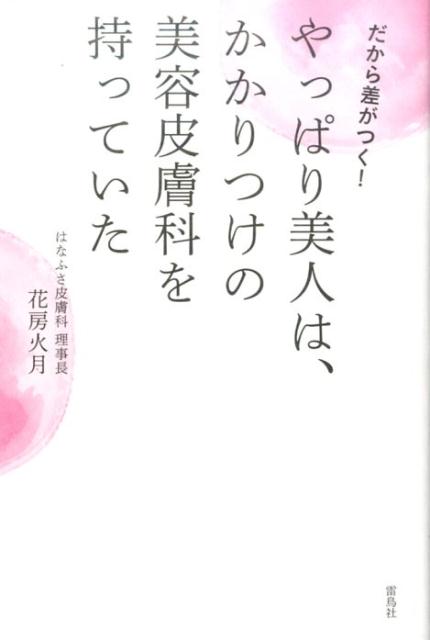 だから差がつく!
やっぱり美人は、
かかりつけの
美容皮膚科を
持っていた
はなふさ皮膚科 理事長
花房火月
雷鳥社